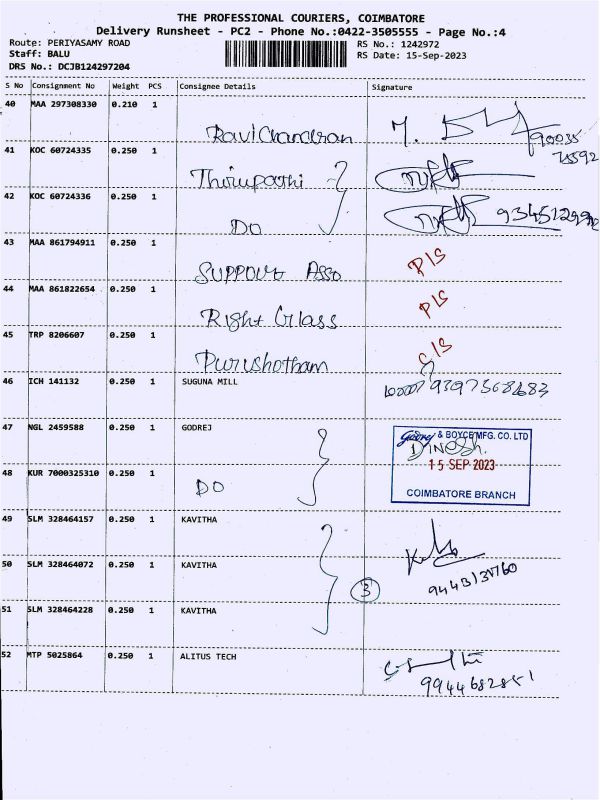 THE PROFESSIONAL COURIERS, COIMBATORE
Delivery Runsheet - PC2 - Phone No.:0422-3505555 - Page No.:4
Route: PERIYASAMY ROAD
RS No.: 1242972
Staff: BALU
RS Date: 15-Sep-2023
DRS No.: DCJB124297204
S No Consignment No Weight PCS Consignee Details Signature
40 MAA 297308330 0.210 1
RaviChandran
90035
75592
41 KOC 60724335 0.250 1
Thirupathi
42 KOC 60724336 0.250 1
DO
43 MAA 861794911 0.250 1
Support Asso
P/S
44 MAA 861822654 0.250 1
Right Glass
P/S
45 TRP 8206607 0.250 1
Purushotham
46 ICH 141132 0.250 1 SUGUNA MILL
47 NGL 2459588 0.250 1 GODREJ
Godrej & BOYCE MFG. CO. LTD
Dinesh.
15 SEP 2023
COIMBATORE BRANCH
48 KUR 7000325310 0.250 1
DO
49 SLM 328464157 0.250 1 KAVITHA
50 SLM 328464072 0.250 1 KAVITHA
3
51 SLM 328464228 0.250 1 KAVITHA
52 MTP 5025864 0.250 1 ALITUS TECH
9944682851